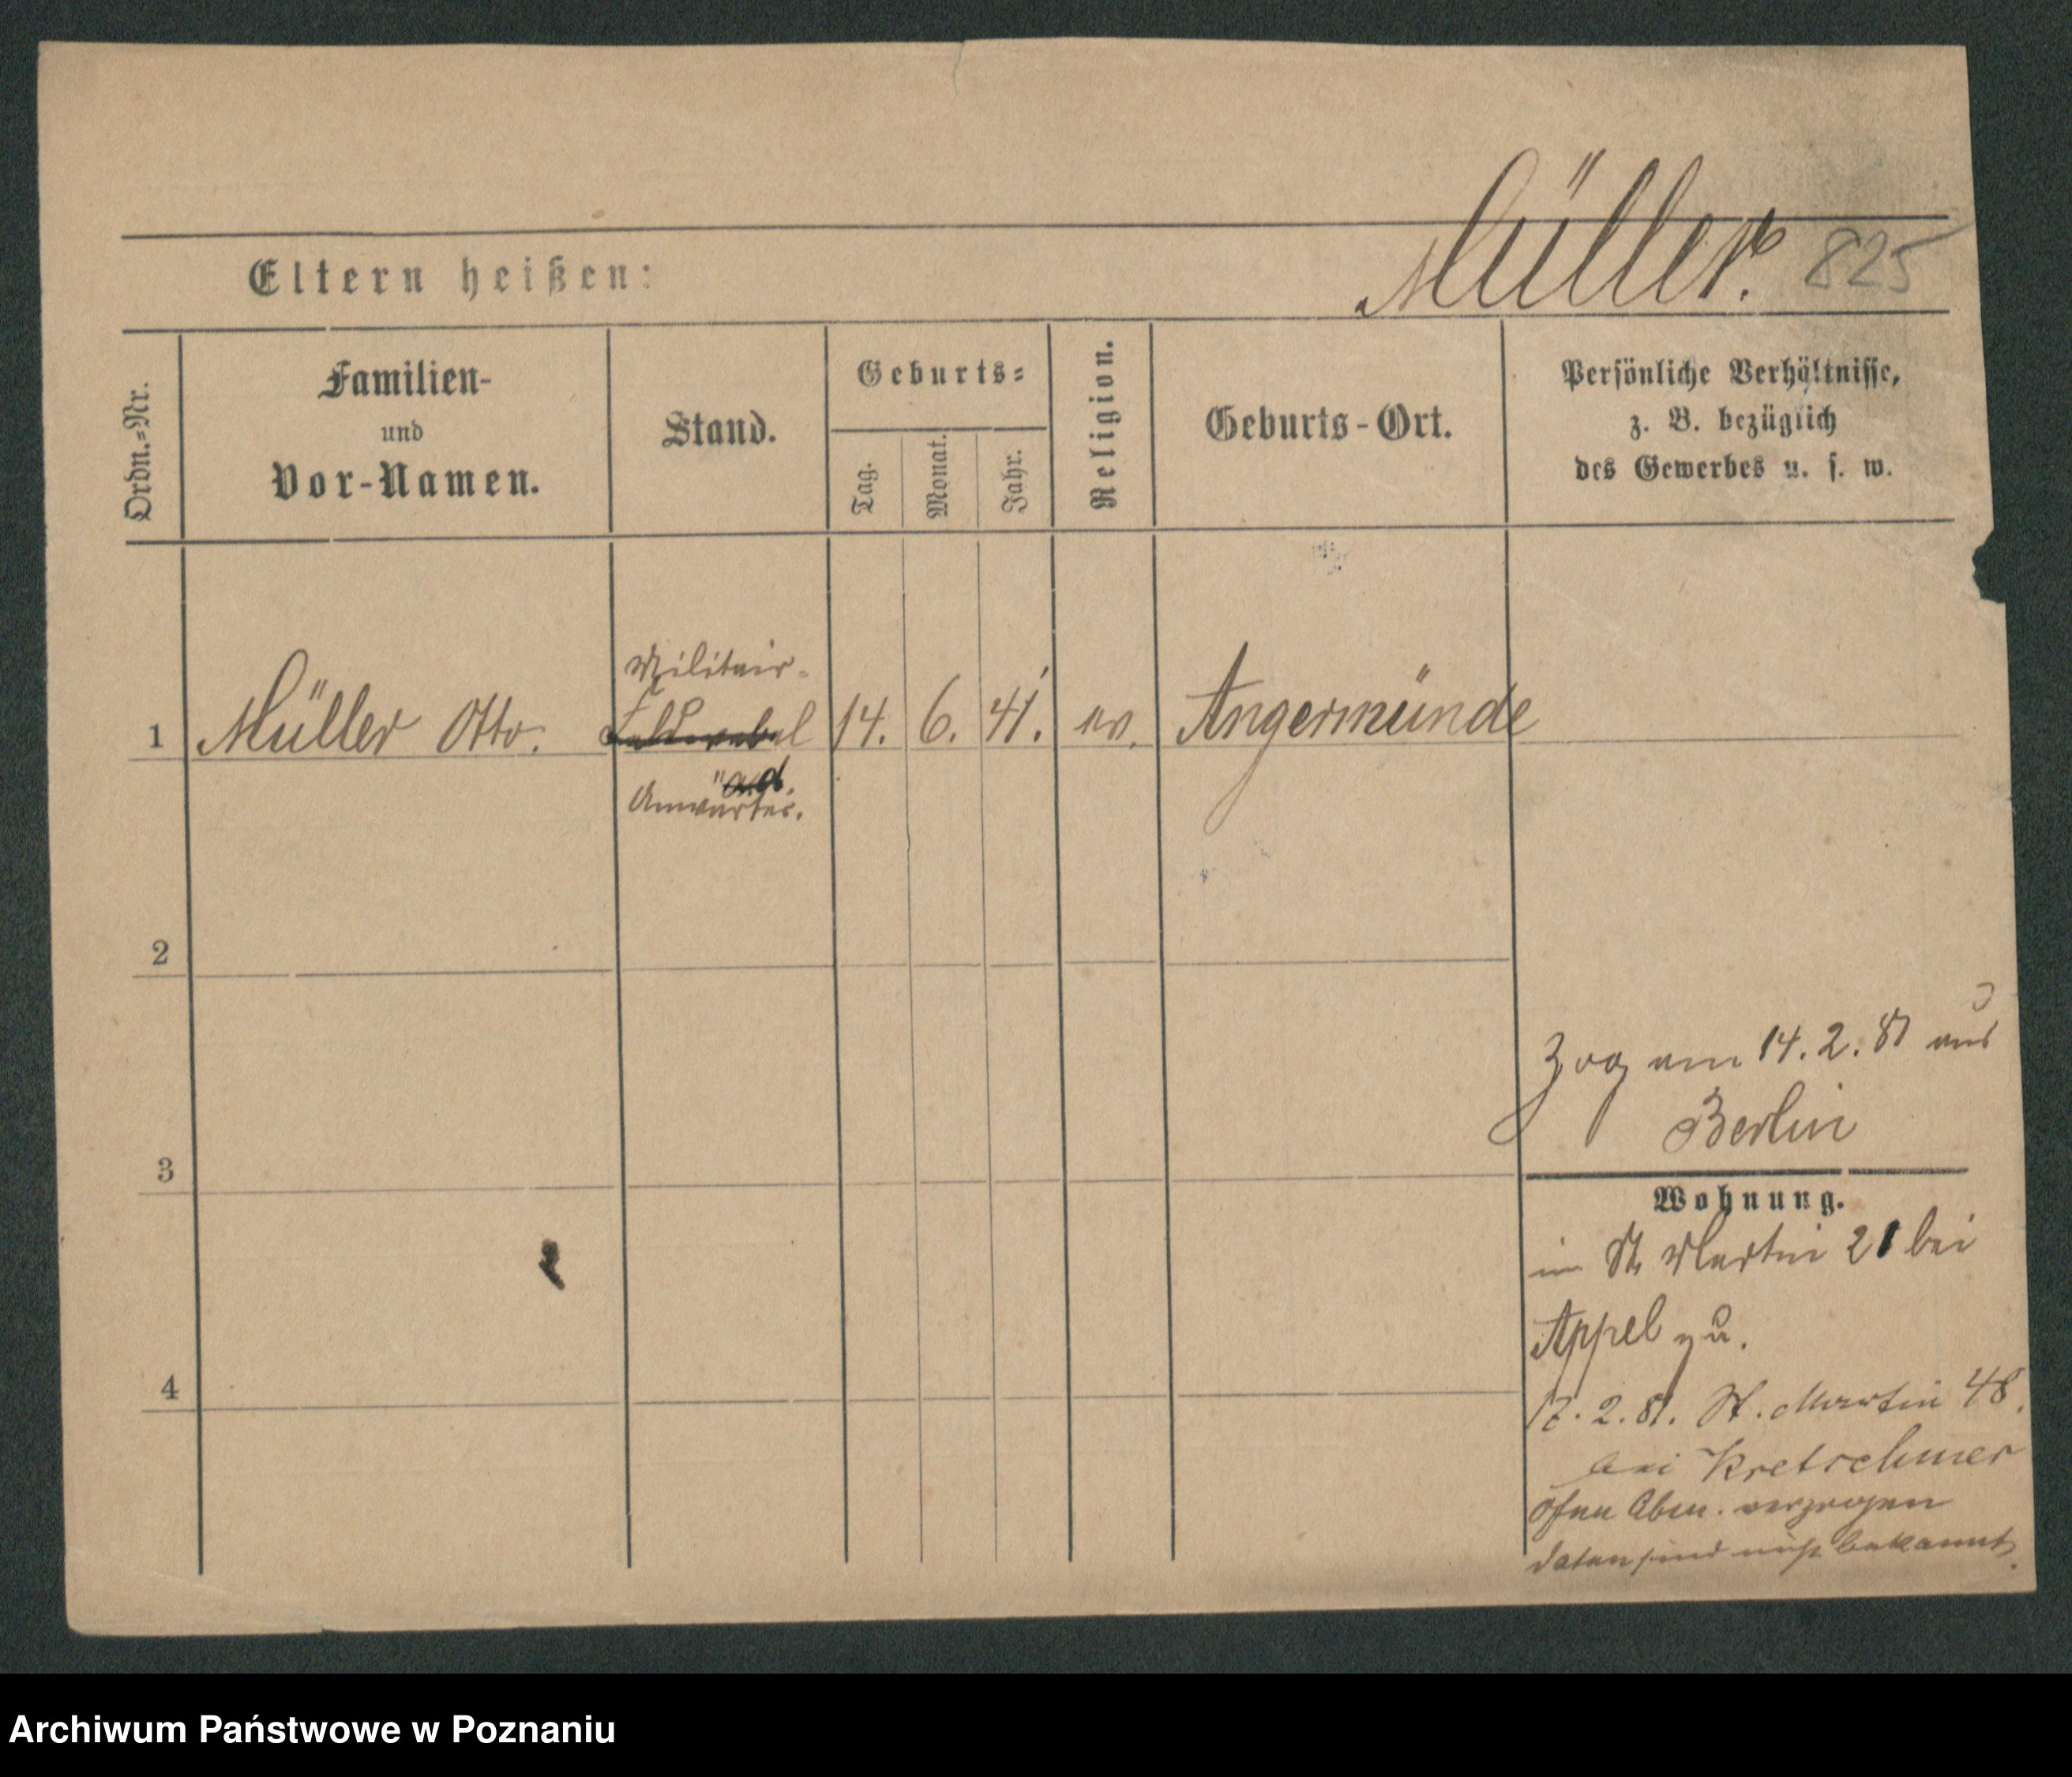 Müller. 825
Eltern heißen:
Ordn.=Nr.
Familien-
und
Vor-Namen.
Stand.
Geburts=
Tag.
Monat.
Jahr.
Religion.
Geburts-Ort.
Persönliche Verhältnisse,
z. B. bezüglich
des Gewerbes u. s. w.
Militair-
1 Müller Otto. Feldwebel 14. 6. 41. ev. Angermünde
Anwärter.
2
Zog am 14. 2. 81 aus
Berlin
3
Wohnung.
in St Martin 21 bei
Appel zu.
4
17. 2. 81. St. Martin 48.
bei Kretschmer
ohne Abm. verzogen
Daten sind nicht bekannt.
Archiwum Państwowe w Poznaniu